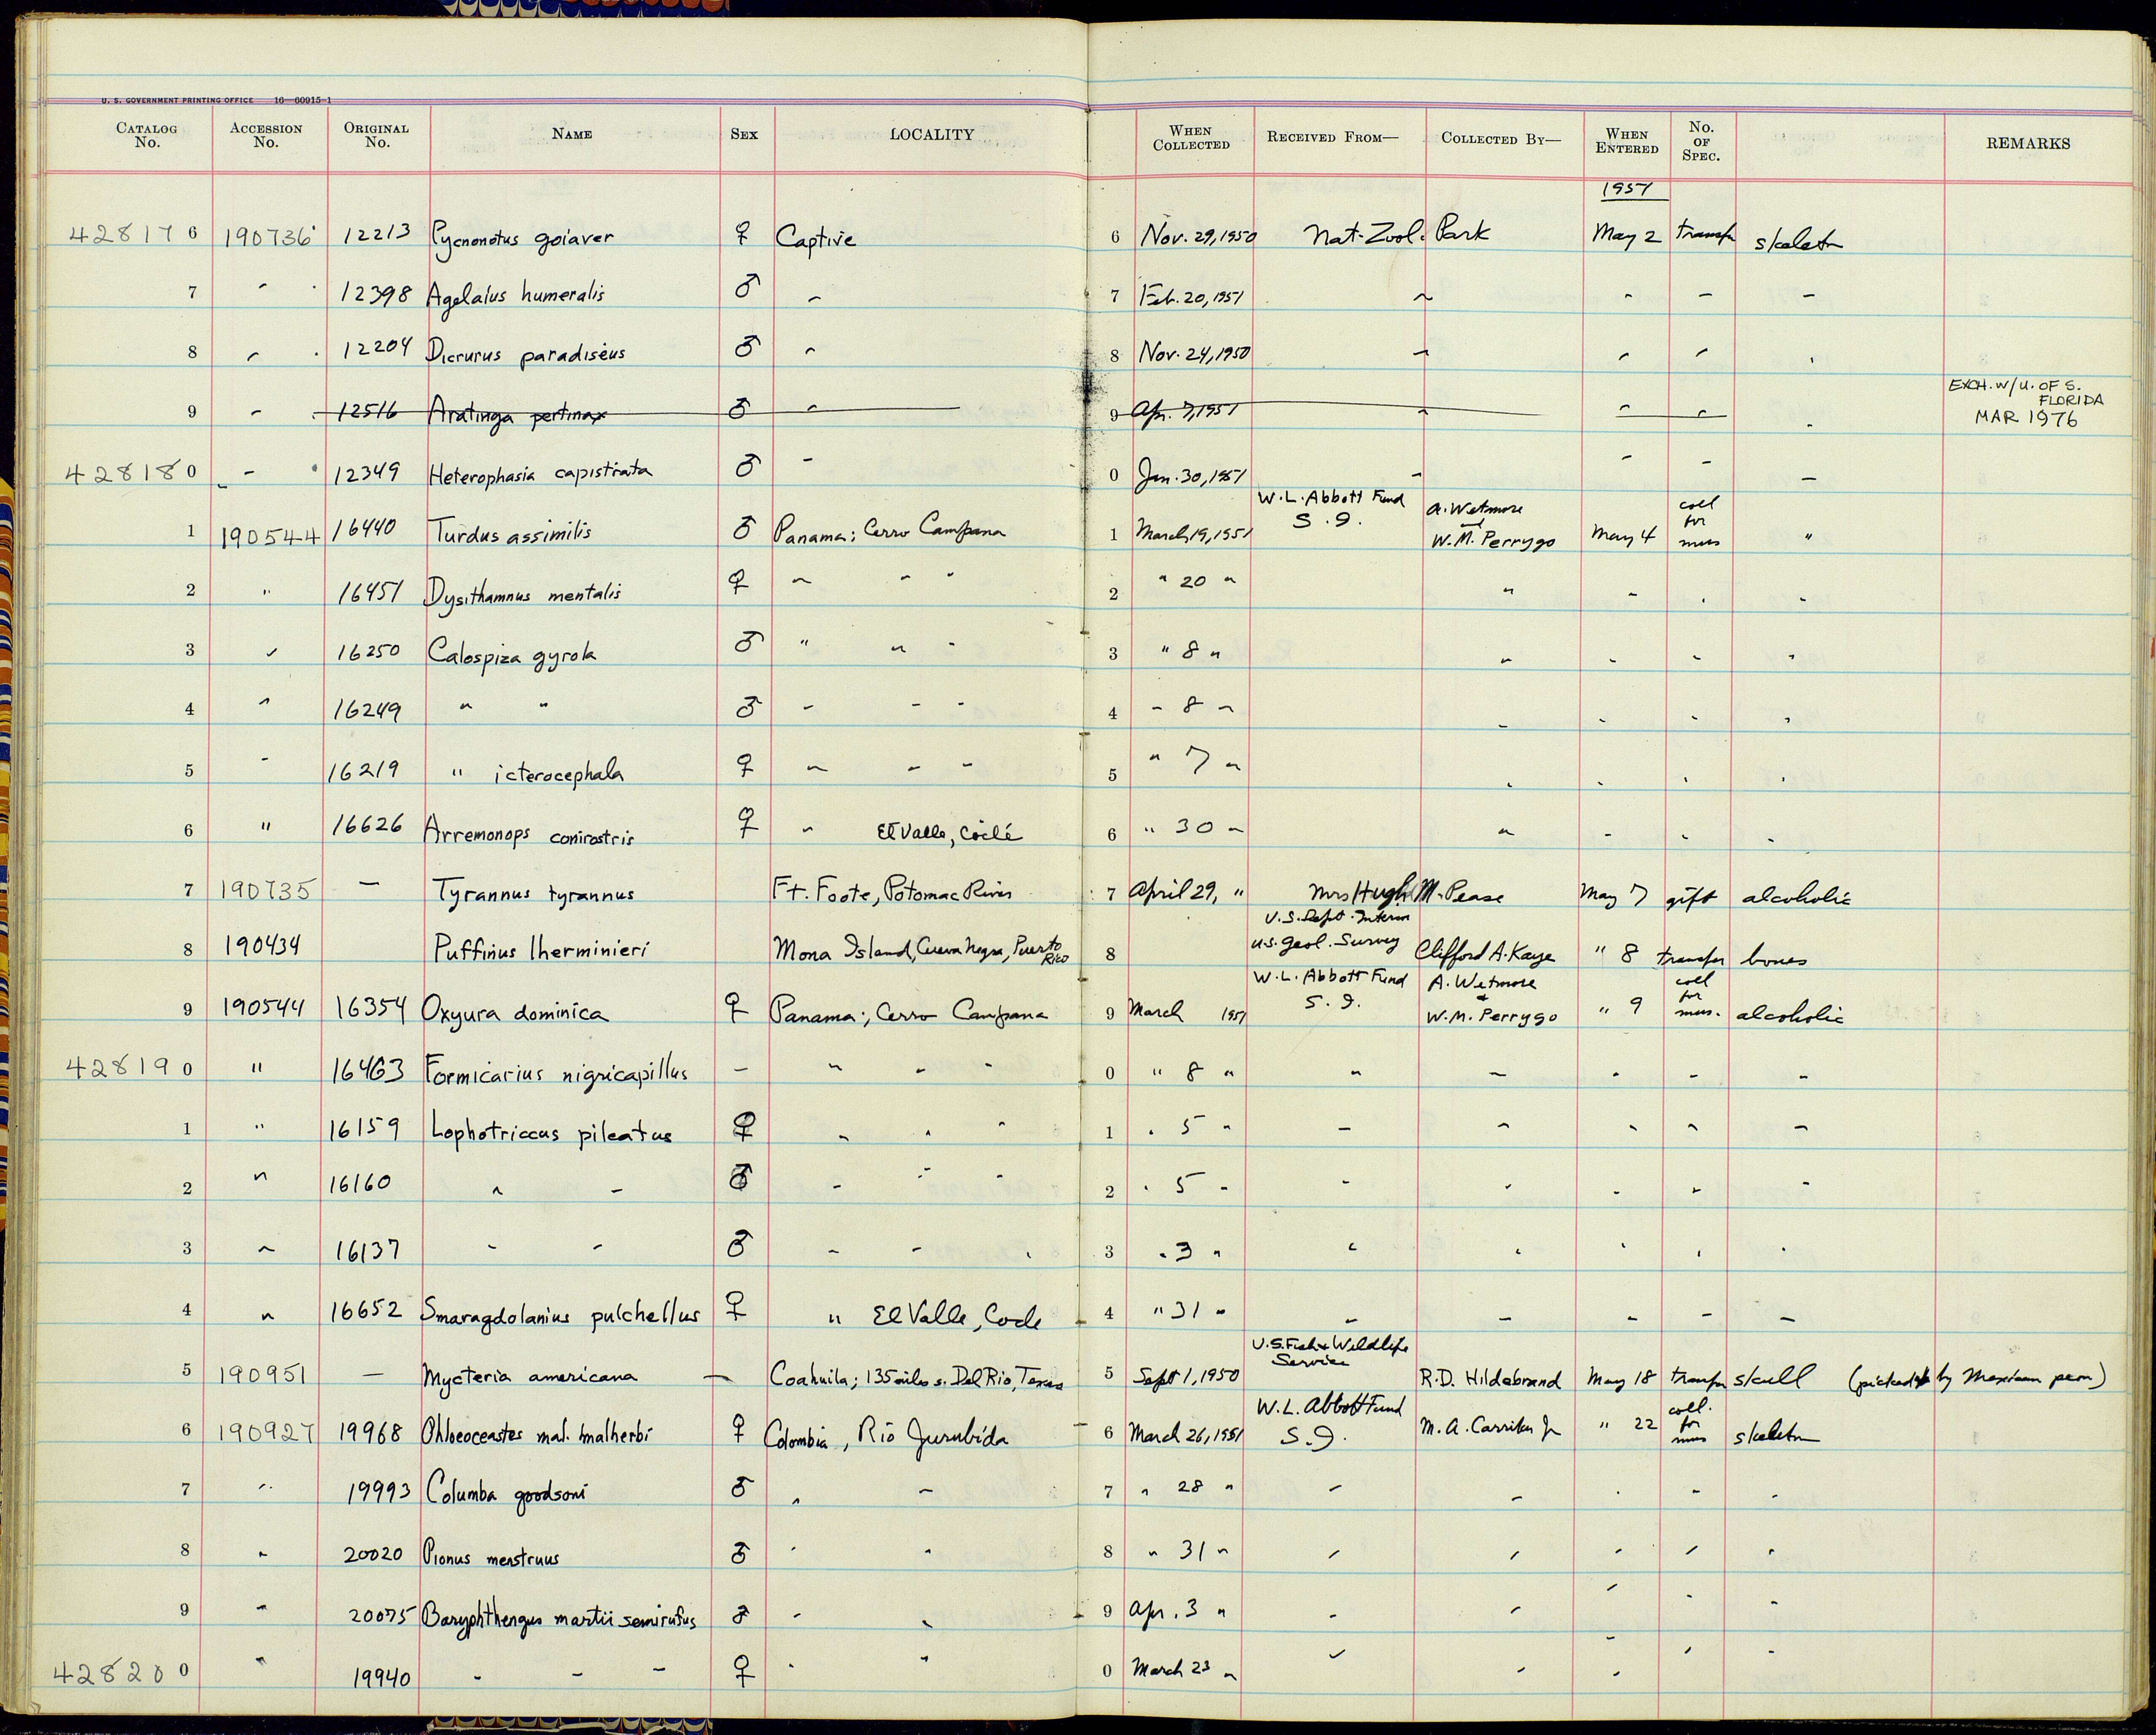 U. S. GOVERNMENT PRINTING OFFICE 16—60915-1
CATALOG No. ACCESSION No. ORIGINAL No. NAME SEX LOCALITY WHEN COLLECTED RECEIVED FROM— COLLECTED BY— WHEN ENTERED No. OF SPEC. REMARKS
1951
428176 190736 12213 Pycnonotus goiaver ♀ Captive 6 Nov. 29, 1950 Nat. Zool. Park May 2 transfer skeleton
7 " 12398 Agelaius humeralis ♂ " 7 Feb. 20, 1951 " " " "
8 " 12204 Dicrurus paradiseus ♂ " 8 Nov. 24, 1950 " " " "
9 " 12516 Aratinga pertinax ♂ " 9 Apr. 7, 1951 " " " " EXCH. W/U. OF S. FLORIDA MAR 1976
428180 " 12349 Heterophasia capistrata ♂ " 0 Jan. 30, 1951 " " " "
1 190544 16440 Turdus assimilis ♂ Panama; Cerro Campana 1 March 19, 1951 W. L. Abbott Fund S. I. A. Wetmore and W. M. Perrygo May 4 coll for mus "
2 " 16451 Dysithamnus mentalis ♀ " " " 2 " 20 " " " " "
3 " 16250 Calospiza gyrola ♂ " " " 3 " 8 " " " " "
4 " 16249 " " ♂ " " " 4 " 8 " " " " "
5 " 16219 " icterocephala ♀ " " " 5 " 7 " " " " "
6 " 16626 Arremonops conirostris ♀ " El Valle, Coclé 6 " 30 " " " " "
7 190735 — Tyrannus tyrannus Ft. Foote, Potomac River 7 April 29, " Mrs Hugh M. Pease May 7 gift alcoholic
8 190434 Puffinus lherminieri Mona Island, Cueva Negra, Puerto Rico 8 U.S. Dept. Interior U.S. Geol. Survey Clifford A. Kaye " 8 transfer bones
9 190544 16354 Oxyura dominica ♀ Panama; Cerro Campana 9 March 1951 W. L. Abbott Fund S. I. A. Wetmore & W. M. Perrygo " 9 coll for mus. alcoholic
428190 " 16463 Formicarius nigricapillus — " " " 0 " 8 " " " " " "
1 " 16159 Lophotriccus pileatus ♀ " " " 1 " 5 " " " " " "
2 " 16160 " " ♂ " " " 2 " 5 " " " " " "
3 " 16137 " " ♂ " " " 3 " 3 " " " " " "
4 " 16652 Smaragdolanius pulchellus ♀ " El Valle, Cocle 4 " 31 " " " " " "
5 190951 — Mycteria americana — Coahuila; 135 miles s. Del Rio, Texas 5 Sept 1, 1950 U.S. Fish & Wildlife Service R.D. Hildebrand May 18 transfer skull (picked up by Mexican peon)
6 190927 19968 Phloeoceastes mal. malherbi ♀ Colombia, Rio Jurubida 6 March 26, 1951 W. L. Abbott Fund S. I. M. A. Carriker Jr " 22 coll. for mus skeleton
7 " 19993 Columba goodsoni ♂ " " 7 " 28 " " " " " "
8 " 20020 Pionus menstruus ♂ " " 8 " 31 " " " " " "
9 " 20075 Baryphthengus martii semirufus ♂ " " 9 Apr. 3 " " " " " "
428200 " 19940 " " " ♀ " " 0 March 23 " " " " " "